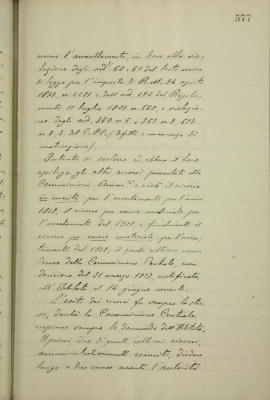 577
nuno l'annullamento, in base alla vio-
lazione degli art.i 50 e 51 del testo unico
di legge per l'imposta di R. M. 24 agosto
1877, n. 4021, dell'art. 120 del Regola-
mento 11 luglio 1907 n. 560, e violazio-
ne degli art. 360 n. 6, e 361 n. 2, 517
n. 2, 3, del C. P. C. (difetto e mancanza di
motivazione).
Pertanto si svolsero ed ebbero il loro
epilogo gli altri ricorsi presentati alla
Commissione e cioè il ricorso
in merito per l'accertamento per l'anno
1912, il ricorso per errore materiale per
l'accertamento del 1911, e finalmente il
ricorso per errore materiale per l'accer-
tamento del 1910, il quale ultimo venne
deciso dalla Commissione Centrale, con
decisione del 31 marzo 1913 notificata
all'Istituto il 14 giugno corrente.
L'esito dei ricorsi fu sempre lo stes-
so, perché la Commissione Centrale
respinse sempre le domande dell'Istituto.
Ognuno di questi ultimi ricorsi,
amministrativamente esauriti, diedero
luogo a due cause avanti l'autorità